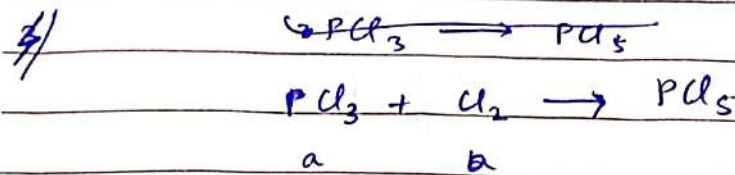 3) PCl3 → PCl5
PCl3 + Cl2 → PCl5
a a